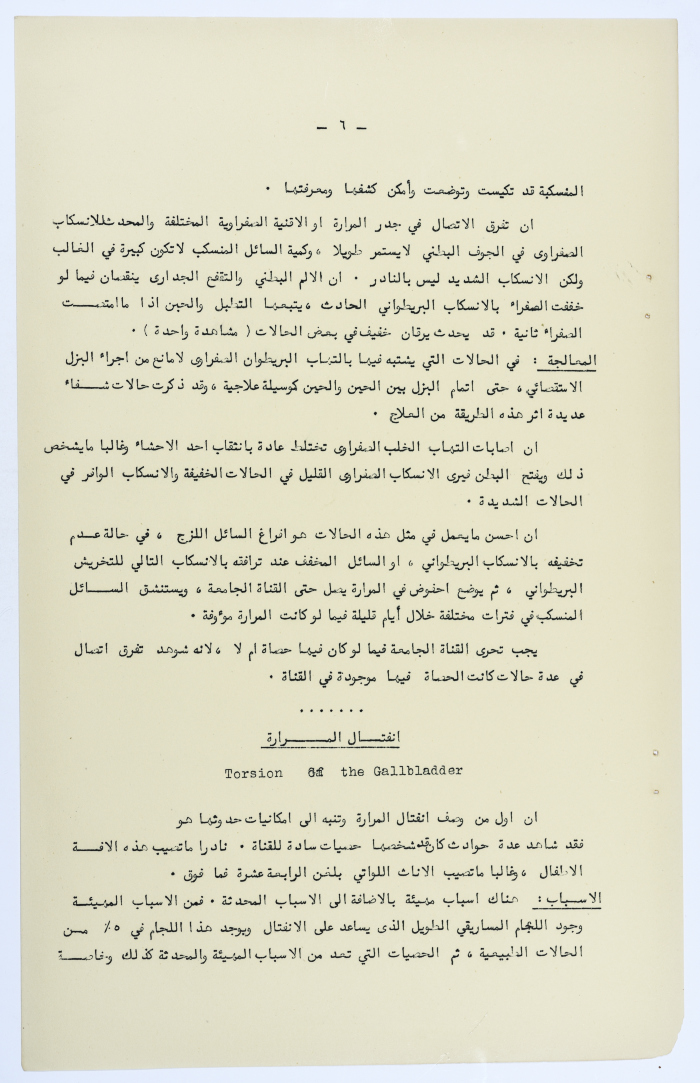 – ٦ –
المنسكبة قد تكيست وتوضعت وأمكن كشفها ومعرفتها .
ان تفرق الاتصال في جدر المرارة او الاقنية الصفراوية المختلفة والمحدث للانسكاب
الصفراوى في الجوف البطني لايستمر طويلا ، وكمية السائل المنسكب لاتكون كبيرة في الغالب
ولكن الانسكاب الشديد ليس بالنادر . ان الالم البطني والتقفع الجدارى ينقصان فيما لو
خففت الصفراء بالانسكاب البريطواني الحادث ، يتبعهما التطبل والحبن اذا ماامتصـــت
الصفراء ثانية . قد يحدث يرقان خفيف في بعض الحالات ( مشاهدة واحدة ) .
المعالجة : في الحالات التي يشتبه فيها بالتهاب البريطوان الصفراوى لامانع من اجراء البزل
الاستقصائي ، حتى اتمام البزل بين الحين والحين كوسيلة علاجية ، وقد ذكرت حالات شـــفاء
عديدة اثر هذه الطريقة من العلاج .
ان اصابات التهاب الخلب الصفراوى تختلط عادة بانثقاب احد الاحشاء وغالبا مايشخص
ذلك ويفتح البطن فيرى الانسكاب الصفراوى القليل في الحالات الخفيفة والانسكاب الوافر في
الحالات الشديدة .
ان احسن مايعمل في مثل هذه الحالات هو افراغ السائل اللزج ، في حالة عـدم
تخفيفه بالانسكاب البريطواني ، او السائل المخفف عند ترافقه بالانسكاب التالي للتخريش
البريطواني ، ثم يوضع احفوض في المرارة يصل حتى القناة الجامعة ، ويستنشق الســـائل
المنسكب في فترات مختلفة خلال أيام قليلة فيما لو كانت المرارة مؤوفة .
يجب تحرى القناة الجامعة فيما لو كان فيها حصاة ام لا ، لانه شوهد تفرق اتصال
في عدة حالات كانت الحصاة فيها موجودة في القناة .
. . . . . . .
انفتـــال المـــــرارة
Torsion of the Gallbladder
ان اول من وصف انفتال المرارة وتنبه الى امكانيات حدوثها هو
فقد شاهد عدة حوادث كان قد شخصها حصيات سادة للقناة . نادرا ماتصيب هذه الافـــة
الاطفال ، وغالبا ماتصيب الاناث اللواتي بلغن الرابعة عشرة فما فوق .
الاســباب : هناك اسباب مهيئة بالاضافة الى الاسباب المحدثة . فمن الاسباب المهيئـــة
وجود اللجام المساريقي الطويل الذى يساعد على الانفتال ويوجد هذا اللجام في ٥٪ مـــن
الحالات الطبيعية ، ثم الحصيات التي تعد من الاسباب المهيئة والمحدثة كذلك وخاصـــة